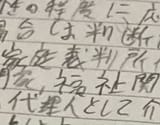 の程度に応
場合は判断
家庭裁判所
、福祉関
代理人として介